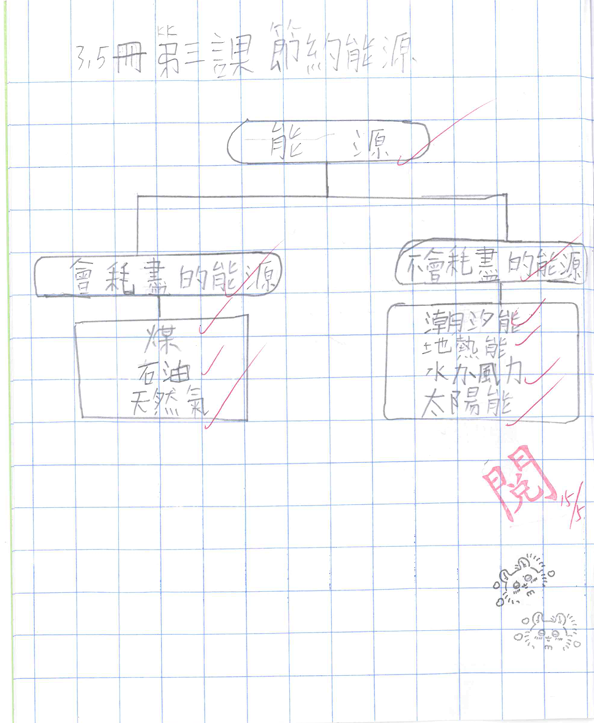 3.5冊第三課 節約能源
能 源
會耗盡的能源
不會耗盡的能源
煤
石油
天然氣
潮汐能
地熱能
水力風力
太陽能
閱
15/5